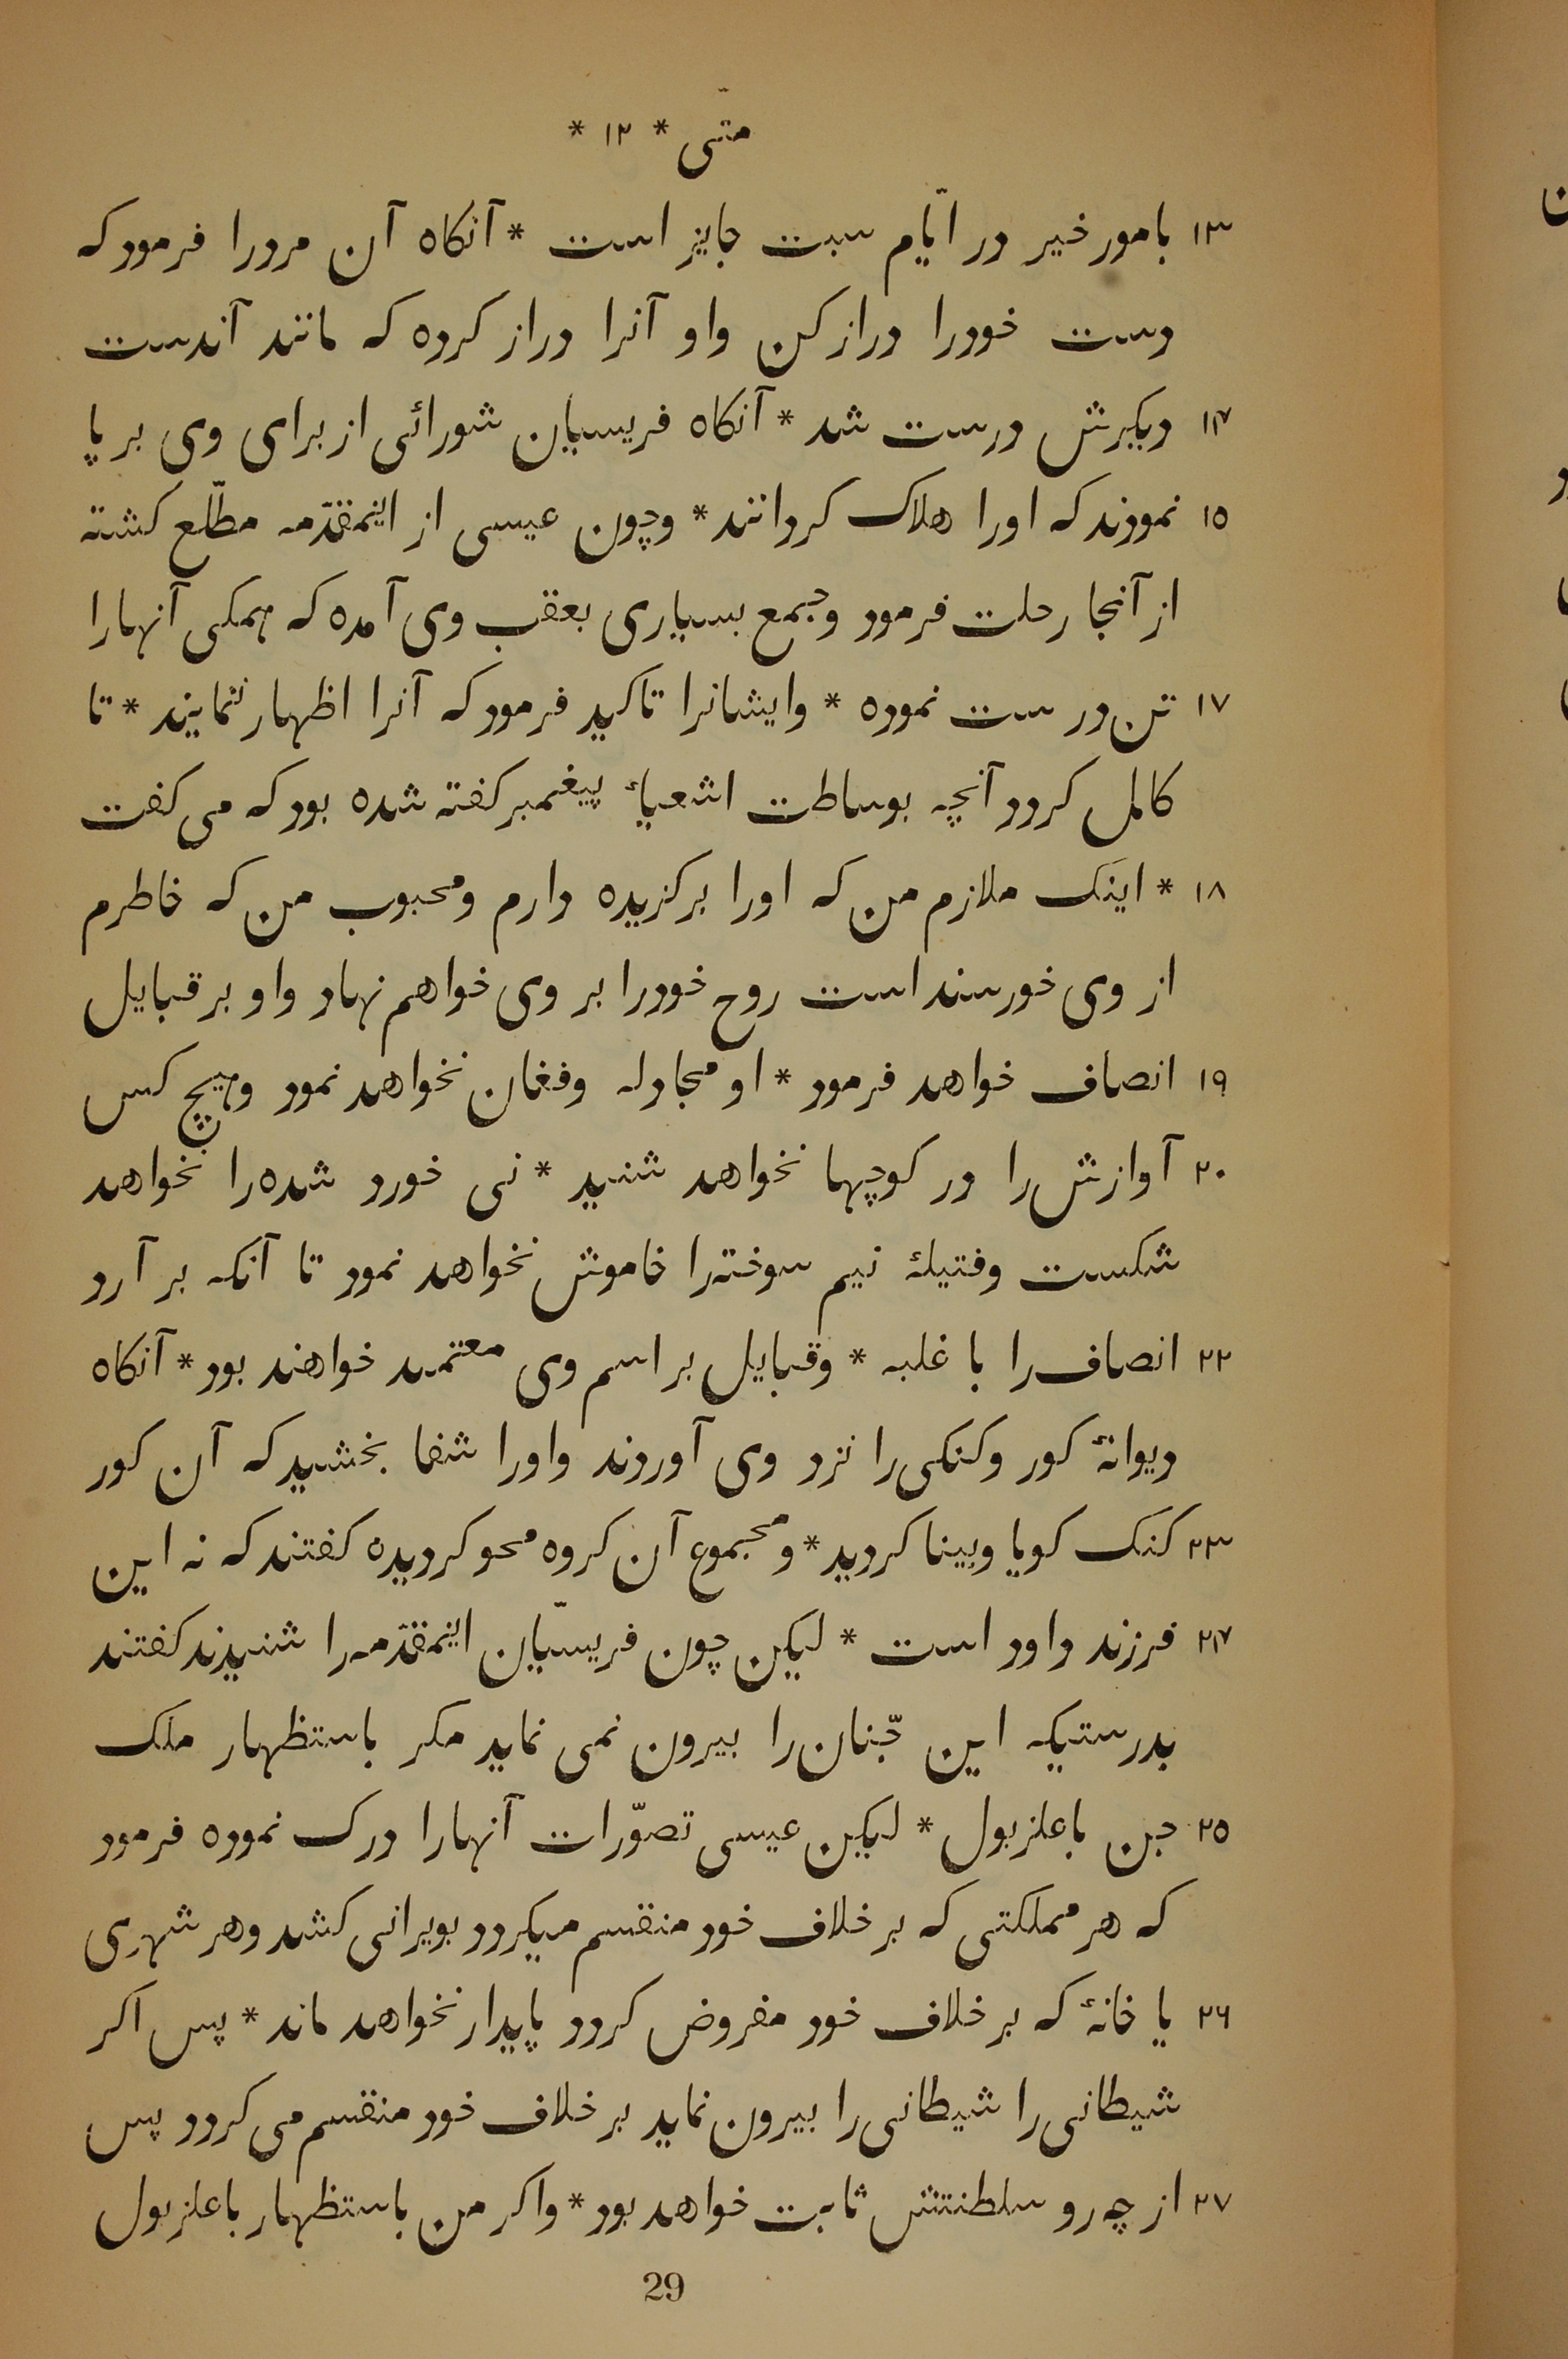 متّی * ۱۲ *
۱۳ بامور خیر در ایّام سبت جایز است * آنکاه آن مردرا فرمود که
دست خودرا دراز کن واو آنرا دراز کرده که مانند آندست
۱۴ دیکیرش درست شد * آنکاه فریسیان شورائی از برای وی بر پا
۱۵ نمودند که اورا هلاک کردانند * وچون عیسی از اینمقدّمه مطّلع کشته
از آنجا رحلت فرمود وجمع بسیاری بعقب وی آمده که همکی آنهارا
۱۷ تن درست نموده * وایشانرا تاکید فرمود که آنرا اظهار ننمایند * تا
کامل کردد آنچه بوساطت اشعیاء پیغمبر کفته شده بود که می کفت
۱۸ * اینک ملازم من که اورا برکزیده دارم ومحبوب من که خاطرم
از وی خورسند است روح خودرا بر وی خواهم نهاد واو بر قبایل
۱۹ انصاف خواهد فرمود * او مجادله وفغان نخواهد نمود وهیچ کس
۲۰ آوازش را در کوچها نخواهد شنید * نی خورد شده را نخواهد
شکست وفتیلهٔ نیم سوخته را خاموش نخواهد نمود تا آنکه بر آرد
۲۲ انصاف را با غلبه * وقبایل بر اسم وی معتمد خواهند بود * آنکاه
دیوانهٔ کور وکنکی را نزد وی آوردند واورا شفا بخشید که آن کور
۲۳ کنک کویا وبینا کردید * ومجموع آن کروه محو کردیده کفتند که نه این
۲۴ فرزند داود است * لیکن چون فریسیّان اینمقدّمه را شنیدند کفتند
بدرستیکه این جّنان را بیرون نمی نماید مکر باستظهار ملک
۲۵ جن باعلزبول * لیکن عیسی تصوّرات آنهارا درک نموده فرمود
که هر مملکتی که بر خلاف خود منقسم میکردد بویرانی کشد وهر شهری
۲۶ یا خانهٔ که بر خلاف خود مفروض کردد پایدار نخواهد ماند * پس اکر
شیطانی را شیطانی را بیرون نماید بر خلاف خود منقسم می کردد پس
۲۷ از چه رو سلطنتش ثابت خواهد بود * واکر من باستظهار باعلزبول
29